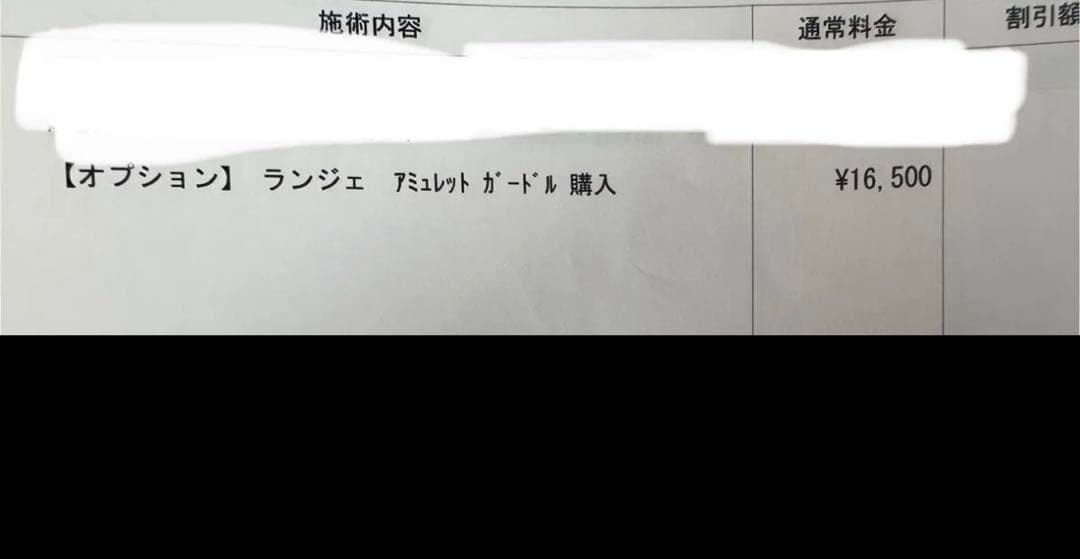 施術内容 通常料金 割引額
【オプション】 ランジェ ｱﾐｭﾚｯﾄ ｶﾞｰﾄﾞﾙ 購入 ¥16,500